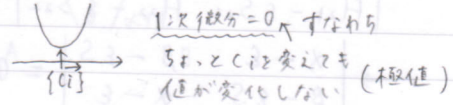 1次微分=0 すなわち
ちょっとCiを変えても
値が変化しない (極値)
{Ci}